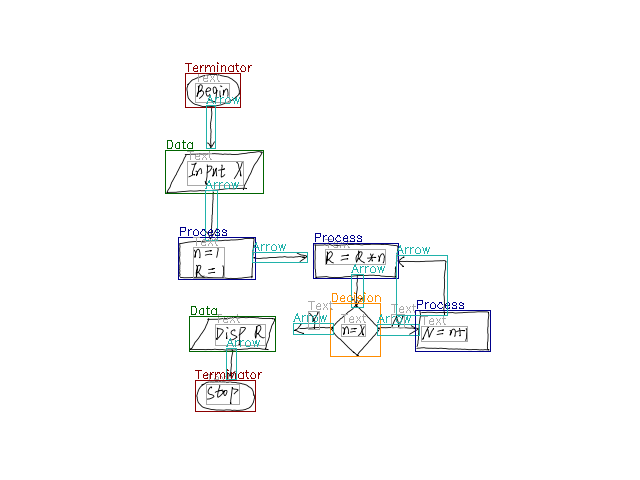 Terminator
Text
Begin
Arrow
Data
Text
Input X
Arrow
Process
Text
n=1
R=1
Arrow
Process
Text
R = R*n
Arrow
Arrow
Decision
Text
n=X
Text
Y
Arrow
Text
N
Arrow
Process
Text
N = n+1
Data
Text
Disp R
Arrow
Terminator
Text
Stop